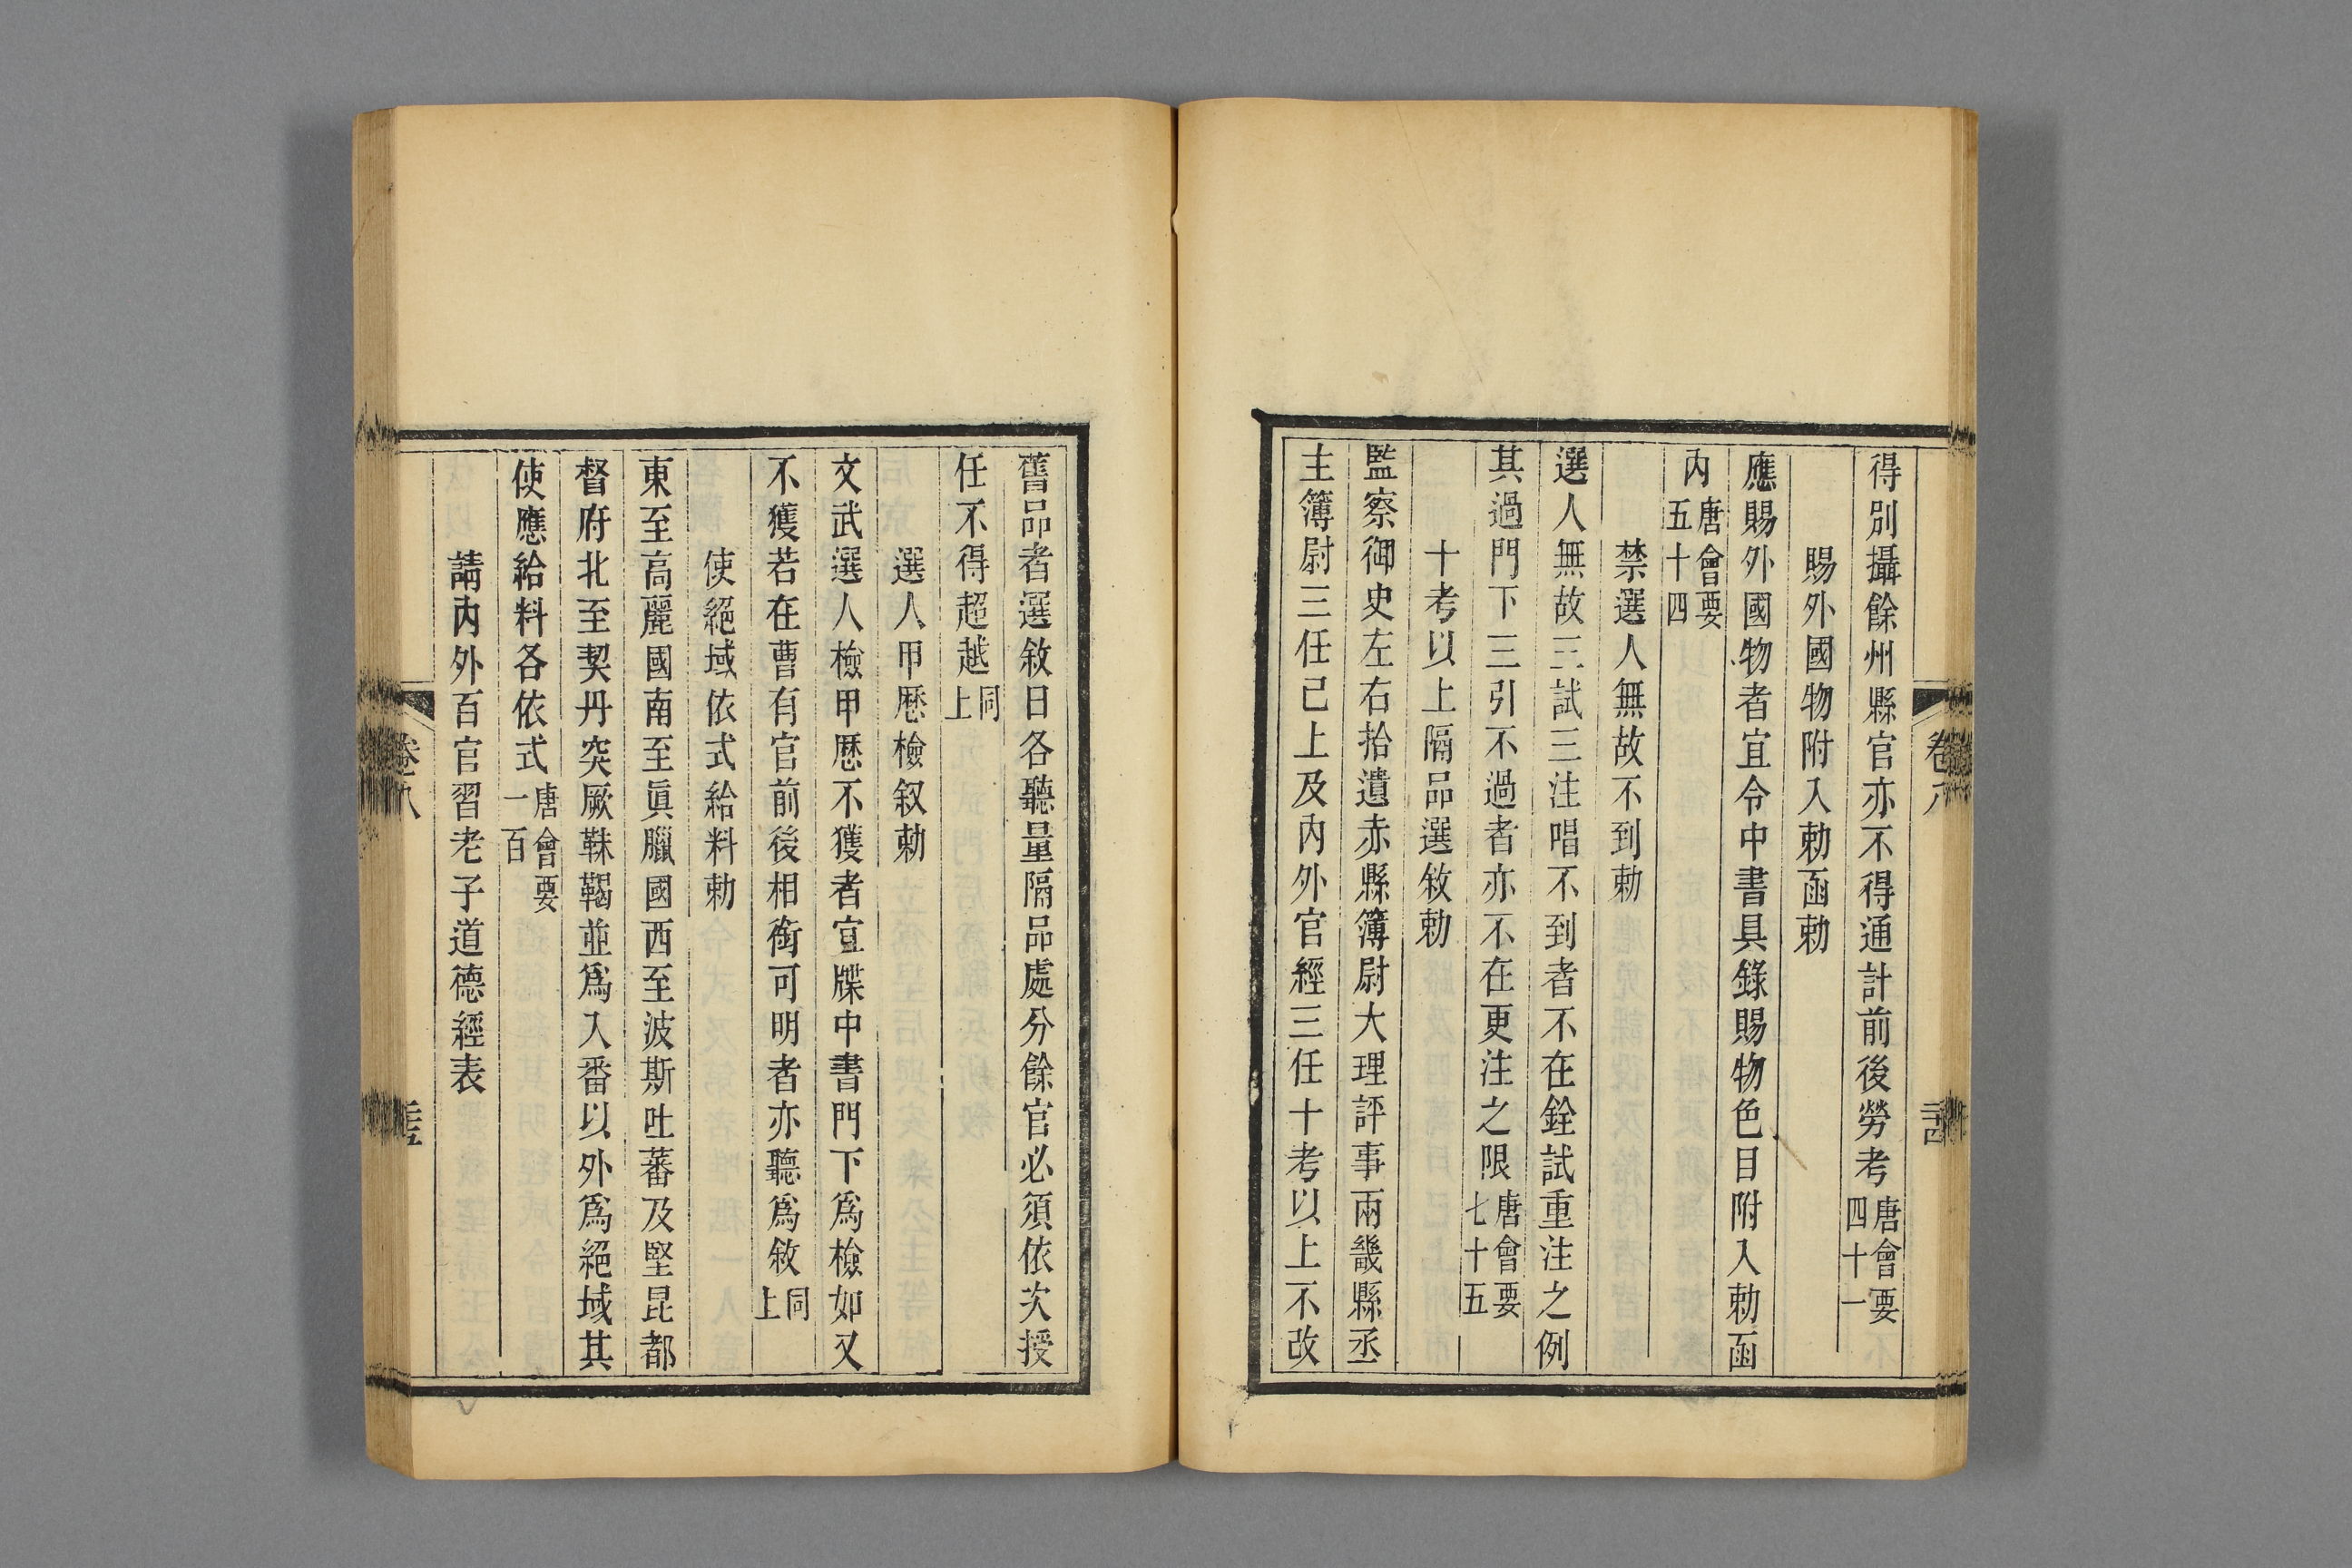 得別攝餘州縣官亦不得通計前後勞考唐會要四十一
賜外國物附入勅函勅
應賜外國物者宜令中書具錄賜物色目附入勅函
內唐會要五十四
禁選人無故不到勅
選人無故三試三注唱不到者不在銓試重注之例
其過門下三引不過者亦不在更注之限唐會要七十五
十考以上隔品選敘勅
監察御史左右拾遺赤縣簿尉大理評事兩畿縣丞
主簿尉三任已上及內外官經三任十考以上不改
卷八
舊品者選敘日各聽量隔品處分餘官必須依次授
任不得超越同上
選人甲歷檢叙勅
文武選人檢甲歷不獲者宣牒中書門下爲檢如又
不獲若在曹有官前後相銜可明者亦聽爲敘同上
使絕域依式給料勅
東至高麗國南至眞臘國西至波斯吐蕃及堅昆都
督府北至契丹突厥靺鞨並爲入番以外爲絕域其
使應給料各依式唐會要一百
請內外百官習老子道德經表
卷八